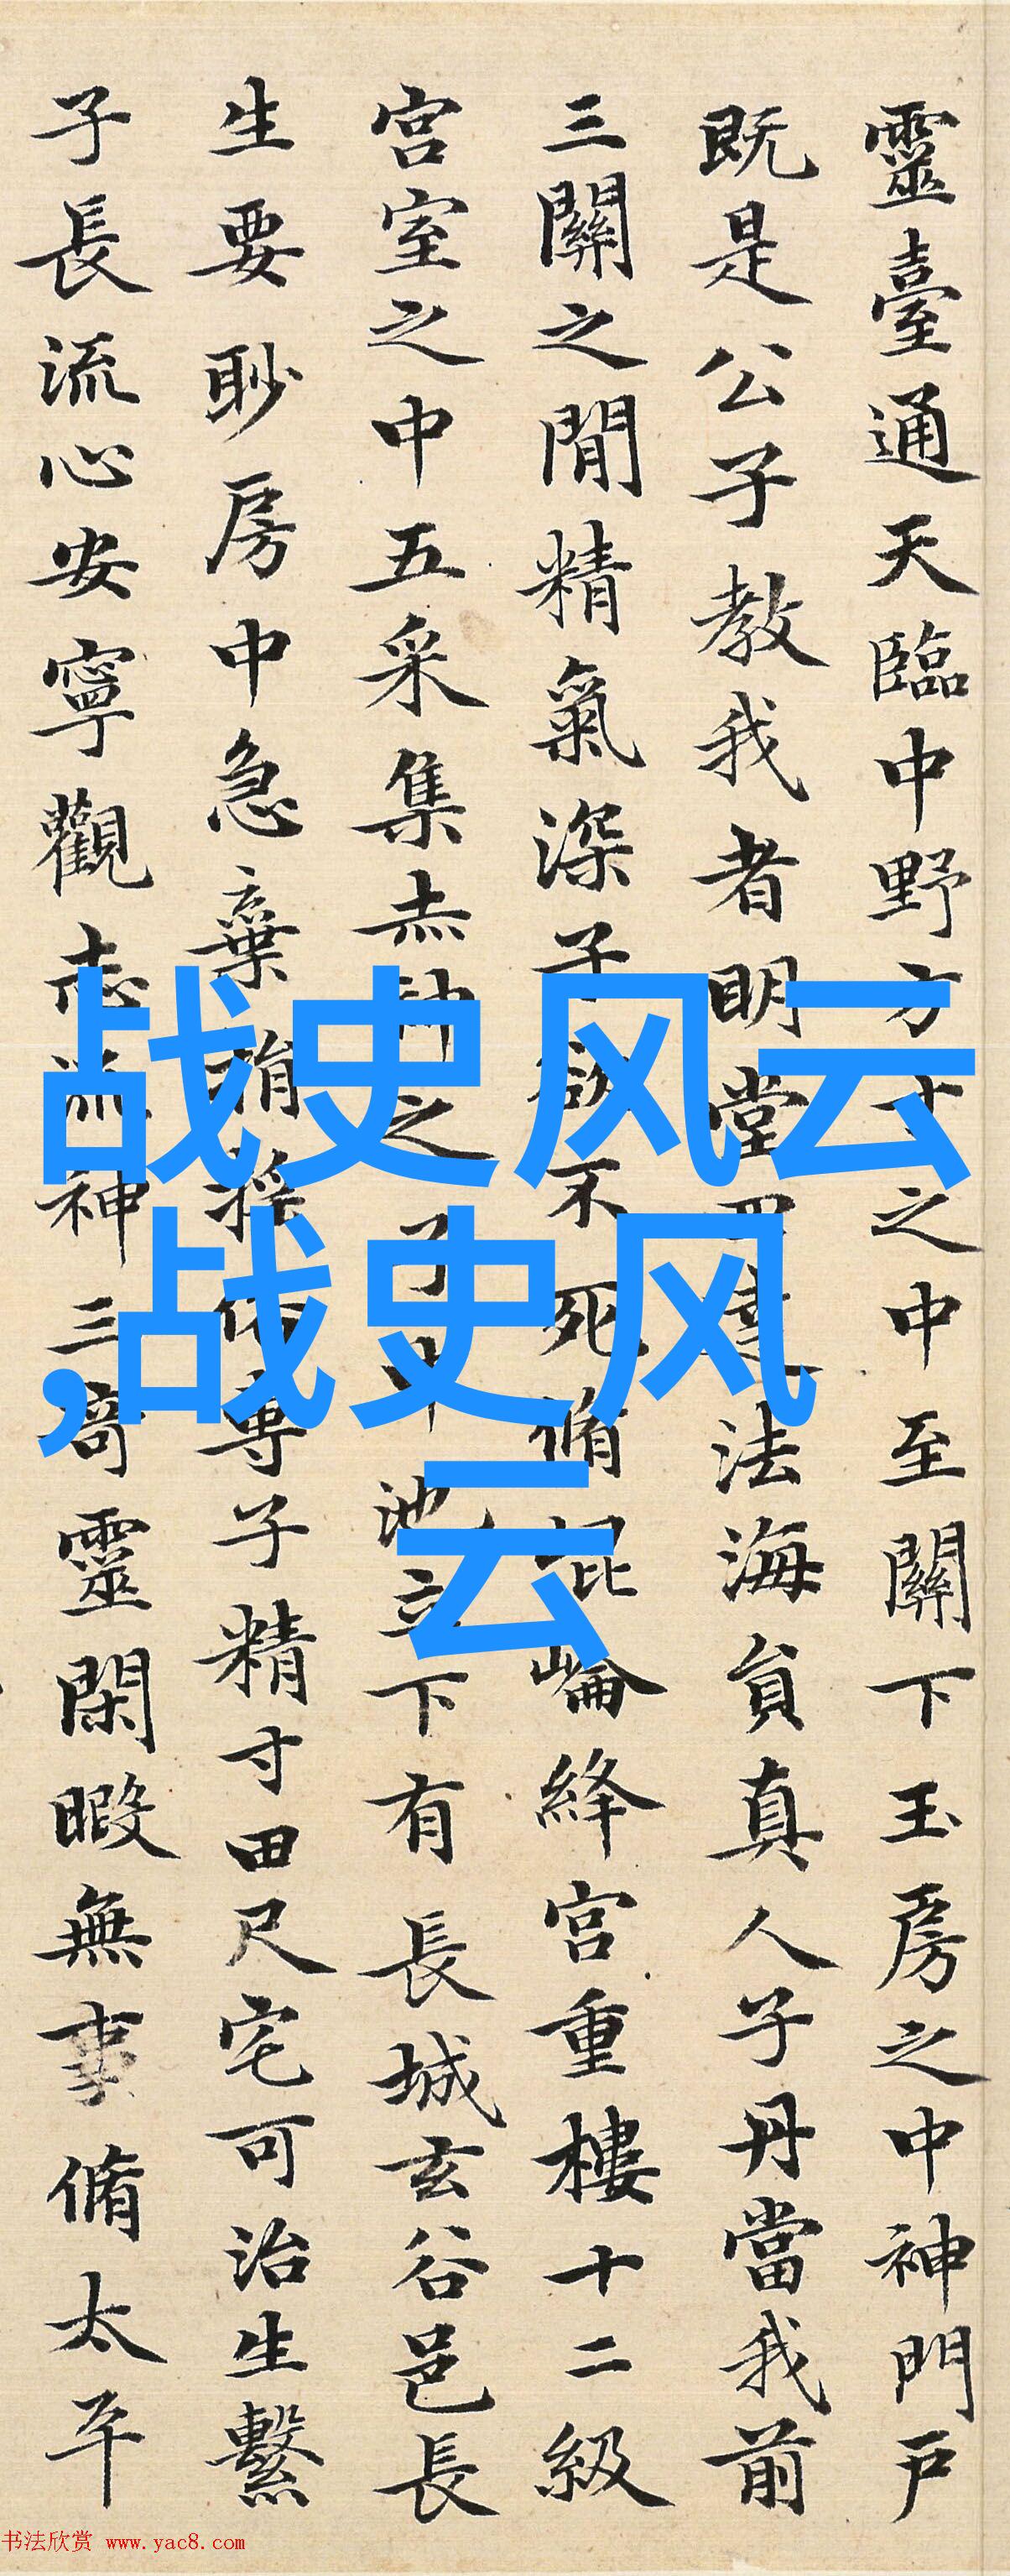 靈臺通天臨中野方寸之中至關下玉房之中神門戶
既是公子教我者明堂四達法海員真人子丹當我前
三關之間精氣深子欲不死脩崐崘絳宮重樓十二級
宮室之中五采集赤神之子中池立下有長城玄谷邑長
生要眇房中急棄捐淫俗專子精寸田尺宅可治生繫
子長流心安寧觀志流神三奇靈閑暇無事脩太平
战史风云
,战史风
云
书法欣赏 www.yac8.com